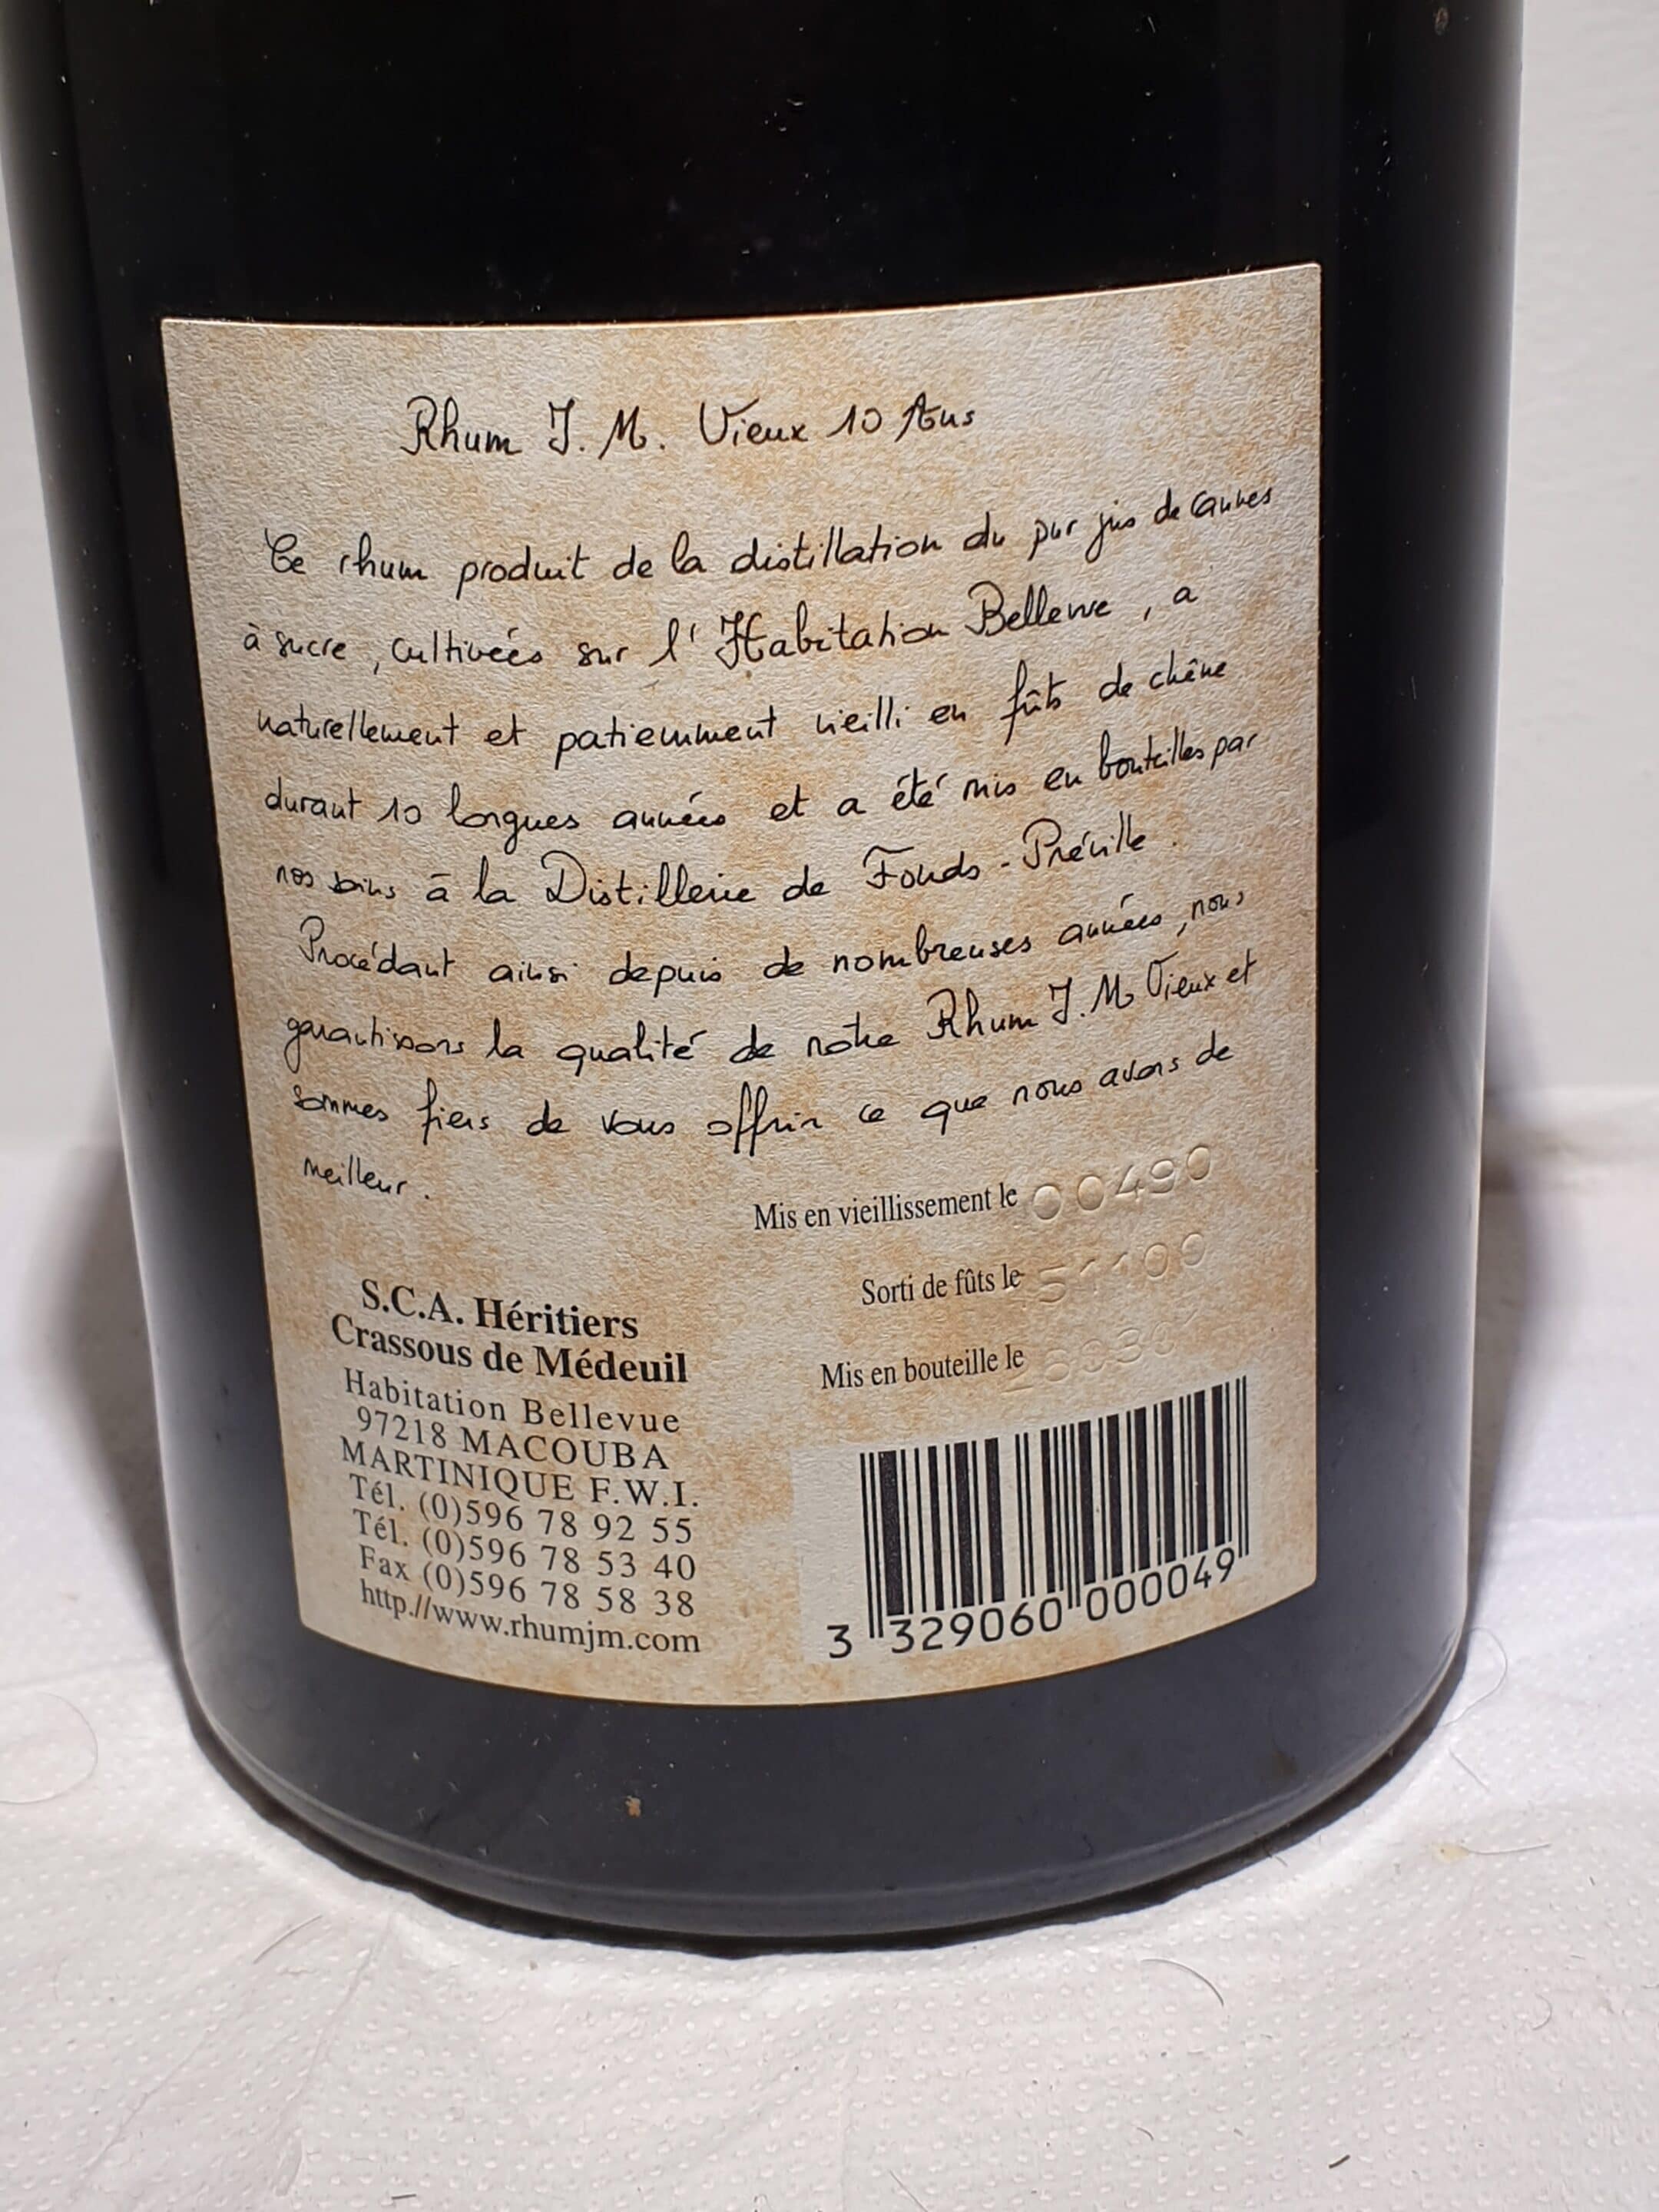 Rhum J.M. Vieux 10 Ans
Ce rhum produit de la distillation du pur jus de cannes
à sucre, cultivées sur l'Habitation Bellevue, a
naturellement et patiemment vieilli en fûts de chêne
durant 10 longues années et a été mis en bouteilles par
nos soins à la Distillerie de Fonds-Préville.
Procédant ainsi depuis de nombreuses années, nous
garantissons la qualité de notre Rhum J.M Vieux et
sommes fiers de vous offrir ce que nous avons de
meilleur.
Mis en vieillissement le 00490
Sorti de fûts le
Mis en bouteille le
S.C.A. Héritiers
Crassous de Médeuil
Habitation Bellevue
97218 MACOUBA
MARTINIQUE F.W.I.
Tél. (0)596 78 92 55
Tél. (0)596 78 53 40
Fax (0)596 78 58 38
http.//www.rhumjm.com
3 329060 000049